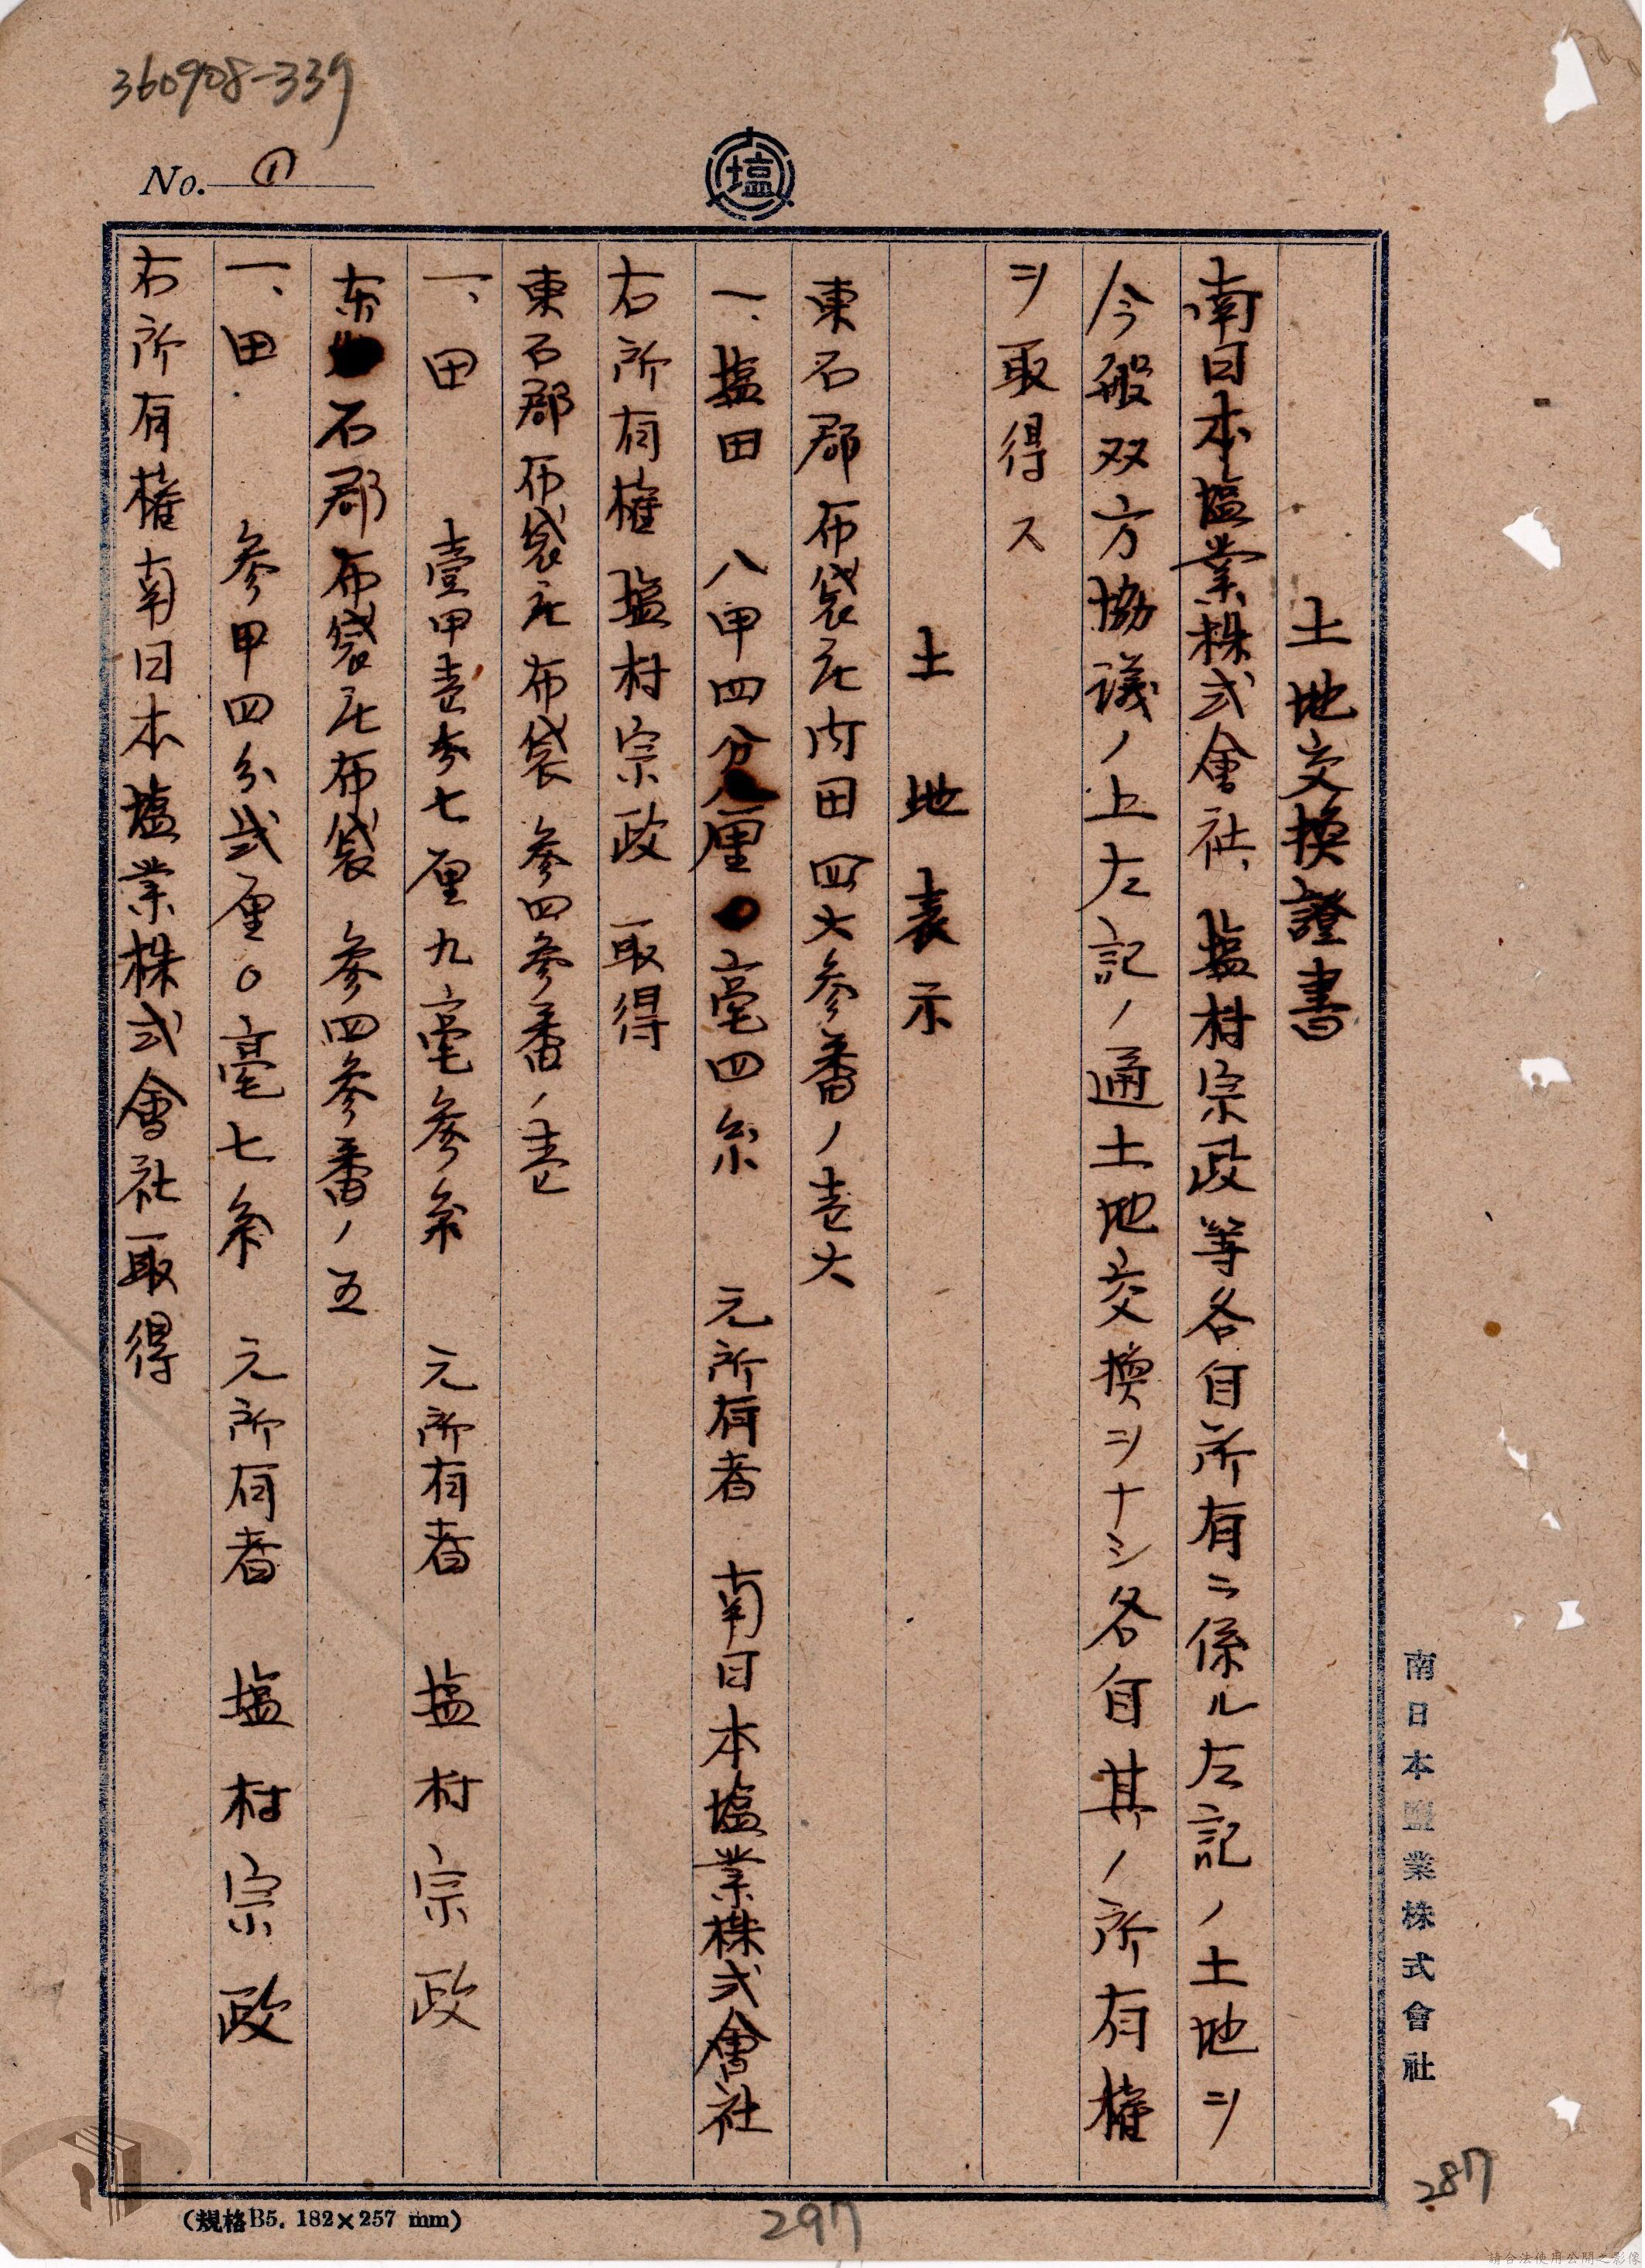 360908-339
No. ①
塩
土地交換證書
南日本塩業株式會社、塩村宗政等各自所有ニ係ル左記ノ土地ヲ
今般双方協議ノ上左記ノ通土地交換ヲナシ各自其ノ所有権
ヲ取得ス
土地表示
東石郡布袋庄内田四六参番ノ壱六
一、塩田 八甲四分厘毫四糸 元所有者 南日本塩業株式會社
右所有権塩村宗政 取得
東石郡布袋庄布袋 参四参番ノ壱
一、田 壹甲壱分七厘九毫参糸 元所有者 塩村宗政
东石郡布袋庄布袋 参四参番ノ五
一、田 参甲四分弐厘〇毫七糸 元所有者 塩村宗政
右所有権南日本塩業株式會社取得
南日本鹽業株式會社
(規格B5. 182×257 mm)
297
287
請合法使用公開之影像